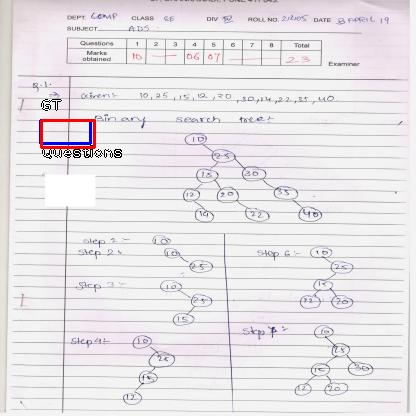 DEPT. COMP CLASS SE DIV ROLL NO. DATE 8 APRIL 19
SUBJECT ADS
Questions 1 2 3 4 5 6 7 8 Total
Marks obtained 10 — 06 07 23
Examiner
Q.1.
GT
Given: 10, 25, 15, 12, 20, 30, 14, 22, 35, 40
Binary search tree:
Questions
10
25
15 30
12 20 35
14 22 40
Step 1:- 10
Step 2:- 10
25
Step 3:- 10
25
15
Step 4:- 10
25
15
12
Step 6:- 10
25
15
12 20
Step 7:- 10
25
15 30
12 20